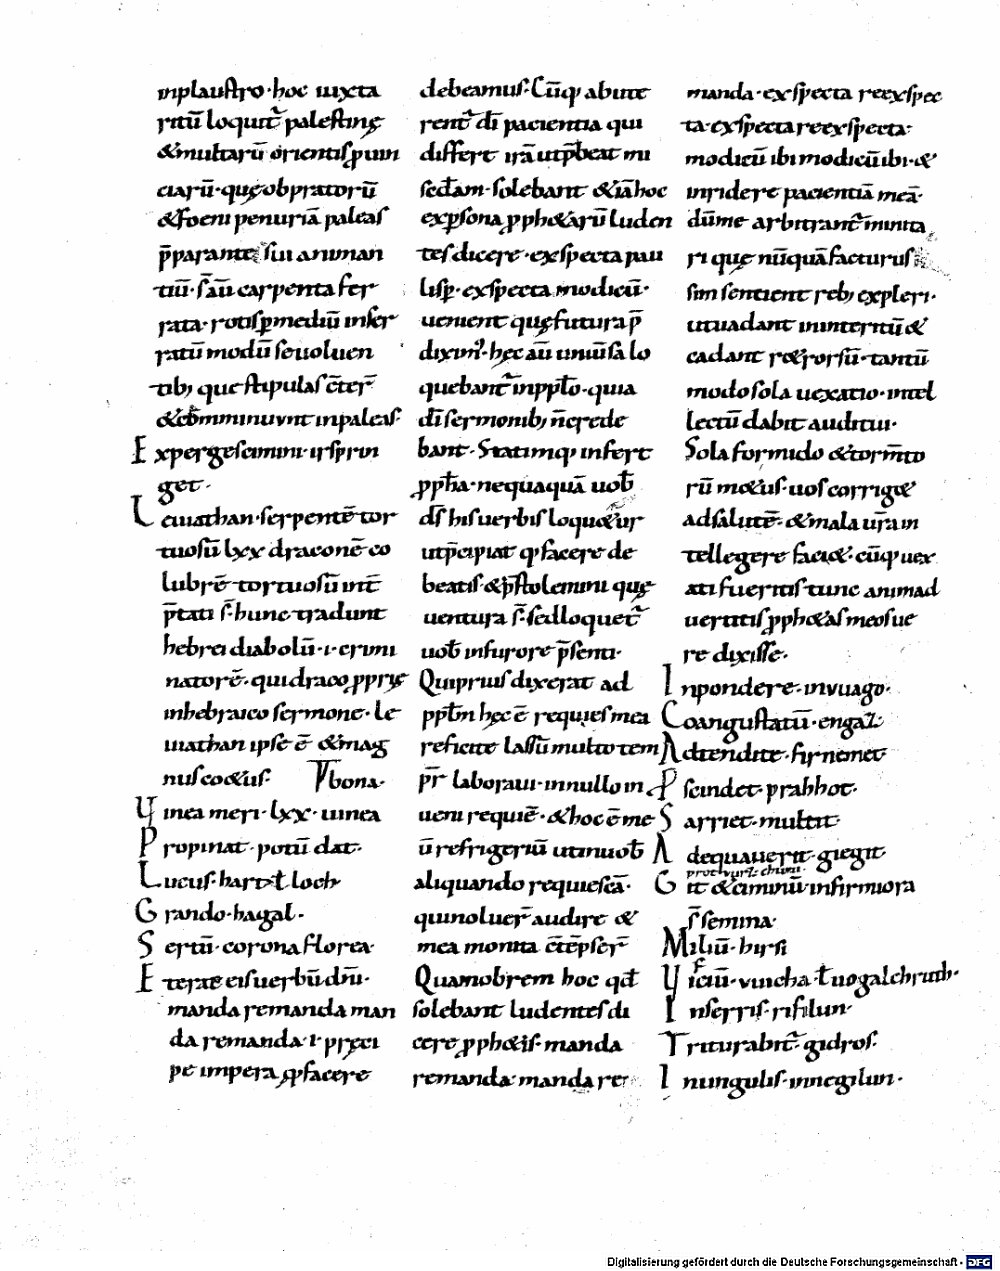 inplaustro· hoc iuxta
ritū loquit̄ palestinę
&multarū orientis ꝓuin
ciarū· quę ob pratorū
&foeni penuriā paleas
p̄parant sui animan
tiū· s̄ aū carpenta fer
rata· rotis ꝑ mediū in ser
ratū modū se uoluen
tib; que stipulas
& cōmminuunt inpaleas·
Expergescimini· irspriu
get·
Leuiathan· serpentē tor
tuosū lxx draconē co
lubrē tortuosū int̄
p̄tati s̄· hunc tradunt
hebrei diabolū· i· crimi
natorē· qui draco ꝓprię
in hebraico sermone· le
uiathan ipse ē &mag
nus coetus· Vbona·
Vinea meri· lxx· uinea
Propinat· potū dat·
Lucus· hart ł loch
Grando· hagal·
Sertū· corona florea·
Eterat eis uerbū dn̄i·
manda remanda man
da remanda· i· pręci
pe impera ꝙ facere
debeamus· Cūq; abute
rent̄ dī pacientia qui
differt irā utp̄beat mi
sedam· solebant &iā hoc
ex ꝑsona ꝓph&arū luden
tes dicere· exspecta pau
lisꝑ· exspecta modicū·
uenient quę futura p̄
diximꝰ· hęc aū uniūsa lo
quebant̄ inpplo· quia
dī sermonib; n̄ crede
bant· Statimq; infert
ꝓpha· nequaquā uob̄
ds̄ his uerbis loqu&ur
ut p̄cipiat ꝙ facere de
beatis· &p̄stolemini quę
uentura s̄· sed loquet̄
uob̄ in furore p̄senti·
Qui prius dixerat ad
pplm hęc ē requies mea
reficite lassū multo tem
pr̄ laboraui· in nullo in
ueni requiē· &hoc ē me
ū refrigeriū ut in uob̄
aliquando requiescā·
qui noluer̄ audire &
mea monita
Quamobrem hoc qd̄
solebant ludentes di
cere ꝓph&is· manda
remanda· manda re
manda· exspecta reexspec
ta· exspecta reexspecta·
modicū ibi modicū ibi· &
inridere pacientiā meā·
dūme arbitrant̄ minita
ri que nūquā facturus
sim sentient reb; expleri·
ut uadant in interitū &
cadant r&rorsū· tantū
modo sola uexatio· intel
lectū dabit auditui·
Sola formido &tormto
rū m&us· uos corrig&
adsalutē· &mala ur̄a in
tellegere faci&· cūq; uex
ati fueritis tunc animad
uertitis ꝓph&as meos ue
re dixisse·
Inpondere· inuuago·
Coangustatū· engaz·
Adtendite· firnemet
Pscindet· prahhot·
Sarriet· multit·
Adequauerit· giegit
Git &ciminū· infirmiora
s̄ semina·
Miliū· hirsi
Viciū· vuicha ł uogalchruth·
Inserris· risilun·
Triturabit̄· gidros·
Inungulis· innegilun·
Digitalisierung gefördert durch die Deutsche Forschungsgemeinschaft - DFG